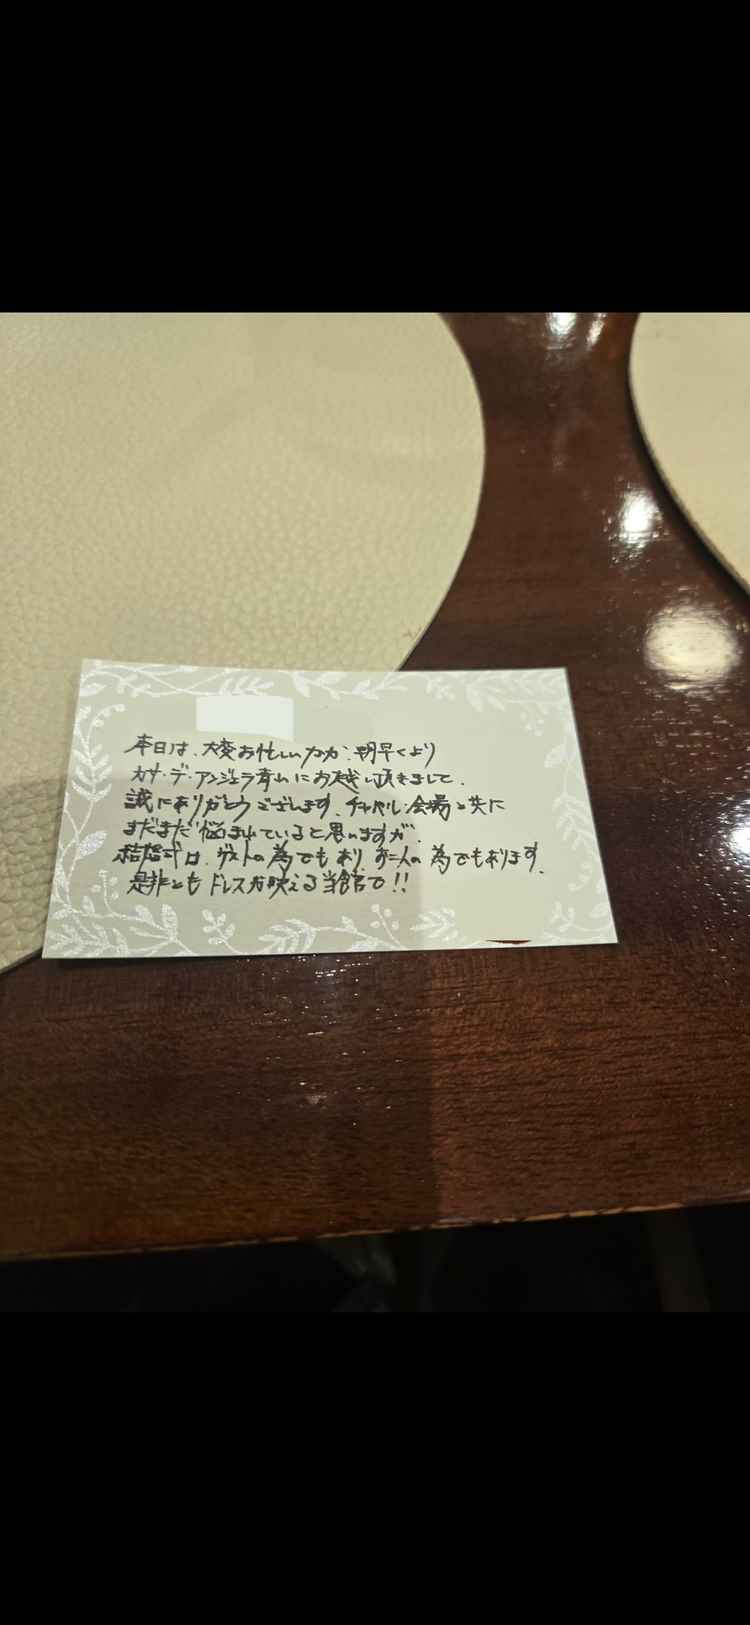 本日は、大変お忙しいなか、朝早くより
カサ・デ・アンジェラ青山にお越し頂きまして、
誠にありがとうございます。チャペル、会場と共に
まだまだ悩まれていると思いますが、
結婚式は、ゲストの為でもあり、お二人の為でもあります。
是非ともドレスが映える当館で!!